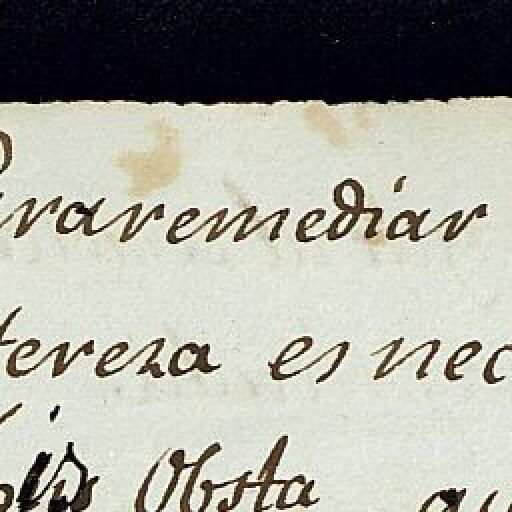 Pararemediar
tereza es nec
Obsta qu